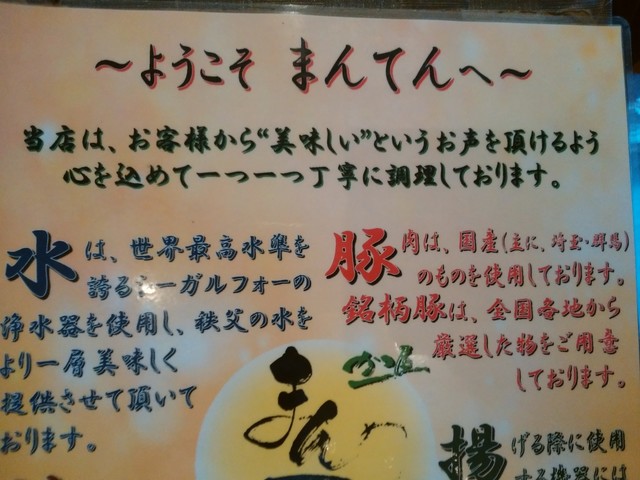 ～ようこそ まんてんへ～
当店は、お客様から“美味しい”というお声を頂けるよう
心を込めて一つ一つ丁寧に調理しております。
水は、世界最高水準を
誇るシーガルフォーの
浄水器を使用し、秩父の水を
より一層美味しく
提供させて頂いて
おります。
豚肉は、国産(主に、埼玉・群馬)
のものを使用しております。
銘柄豚は、全国各地から
厳選した物をご用意
しております。
まん
揚げる際に使用
する機器には